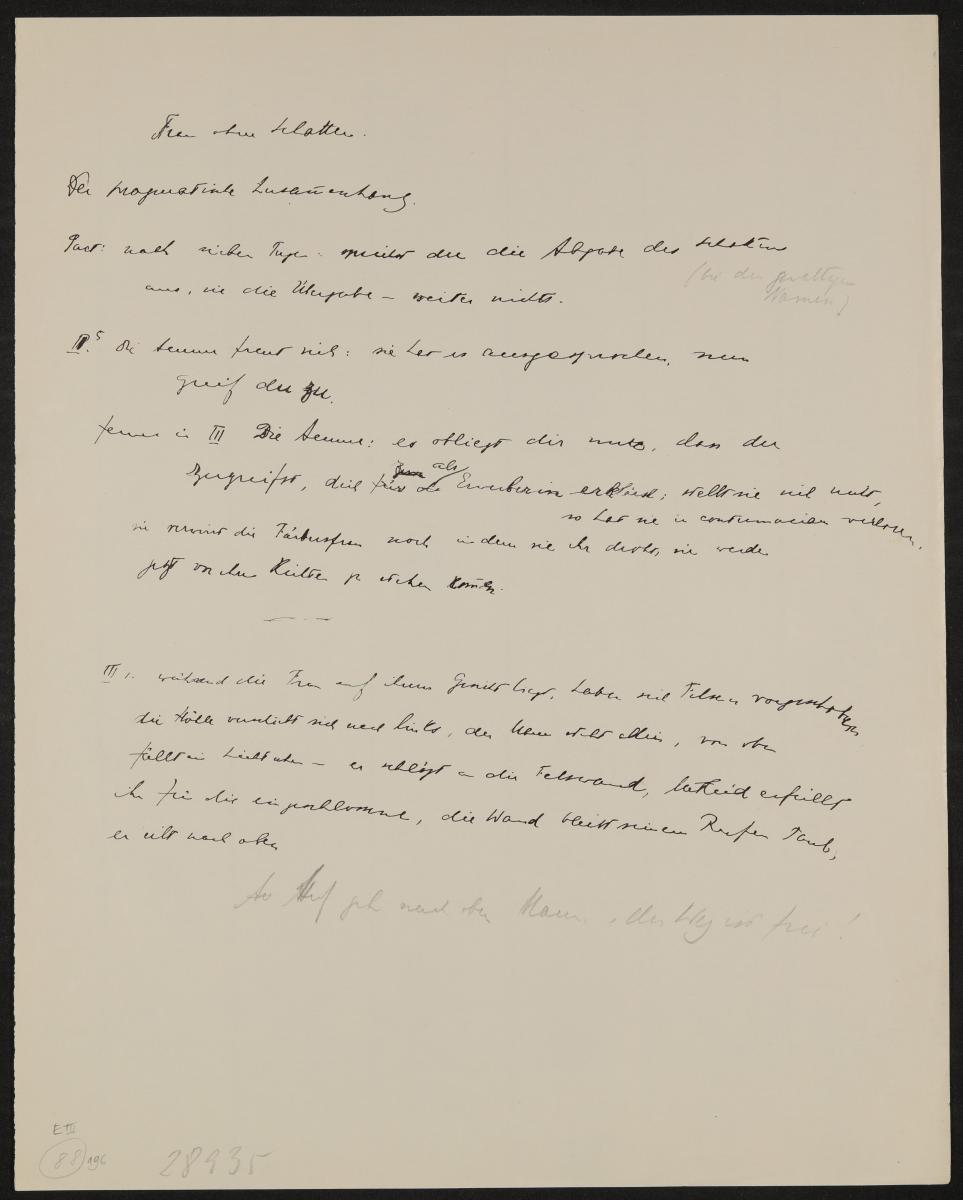 Frau ohne Schatten.
Der pragmatische Zusammenhang.
Pact: nach sieben Tagen: sprichst du die Abgabe des Schattens
(bei den gewaltigen
Namen)
aus, sie die Übergabe – weiter nichts.
II.5 die Amme freut sich: sie hat es ausgesprochen, nun
greif du zu.
ferner in III Die Amme: es obliegt dir nur, dass du
zugreifst, dich als Erwerberin erklärst; stellt sie sich nicht,
so hat sie in contumaciam verloren.
sie verwirrt die Färbersfrau noch indem sie ihr droht, sie werde
jetzt vor den Richter zu stehen kommen.
III 1. während die Frau auf ihrem Gesicht liegt, haben sich Felsen vorgeschoben
die Hölle verdichtet sich nach links, der Mann steht allein, von oben
fällt ein Licht – er schlägt an die Felswand, Mitleid erfüllt
ihn für die eingeschlossene, die Wand bleibt seinem Rufen taub,
er eilt nach oben
Auf geh nach oben Mann, der Weg ist frei!
E III
88
196
28935